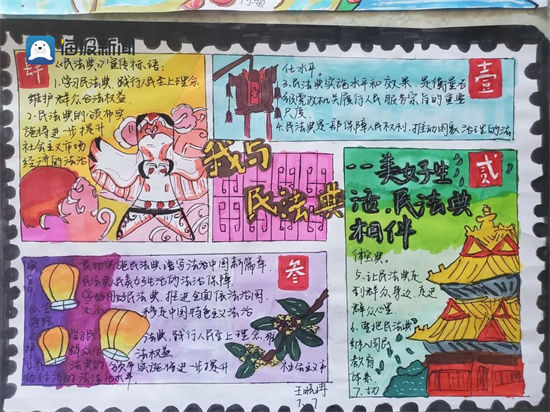 海报新闻
肆
《民法典》宣传标语:
1.学习民法典 践行人民至上理念
维护群众合法权益
2.民法典的颁布实
施将进一步提升
社会主义市场
经济的法治
化水平。
3.民法典实施水平和效果 是衡量各
级党政机关履行人民服务宗旨的重要
尺度
4.民法典是一部保障人民权利,推动国家治理的法
壹
我与
民法典
贰
美好生
活,民法典
相伴
律宝典。
5.让民法典走
到群众身边,走进
群众心里
民法典
教育
体系
7.切
叁
实施民法典,谱写法治中国新篇章
民法典 美好生活的法治保障
民法典 推进全面依法治国
中国特色
法治
法典,践行人民至上理念,维
法权益
实施将进一步提升
社会主义市